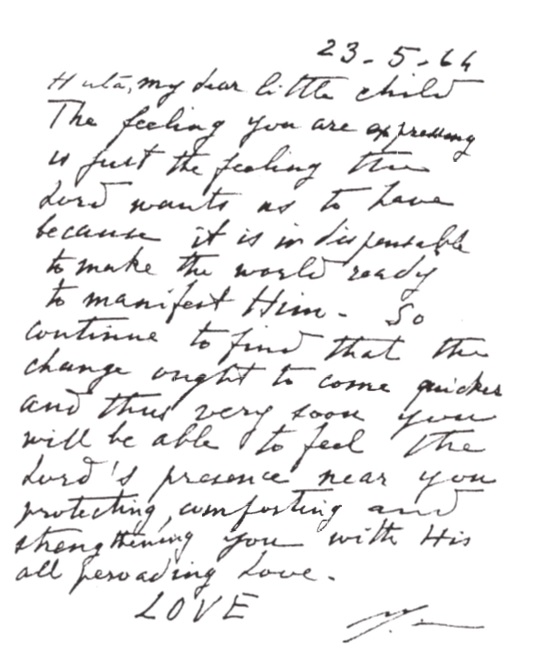 23-5-64
Huta, my dear little child
The feeling you are expressing
is just the feeling the
Lord wants us to have
because it is indispensable
to make the world ready
to manifest Him - So
continue to find that the
change ought to come quicker
and thus very soon you
will be able to feel the
Lord's presence near you
protecting, comforting and
strengthening you with His
all pervading Love.
LOVE